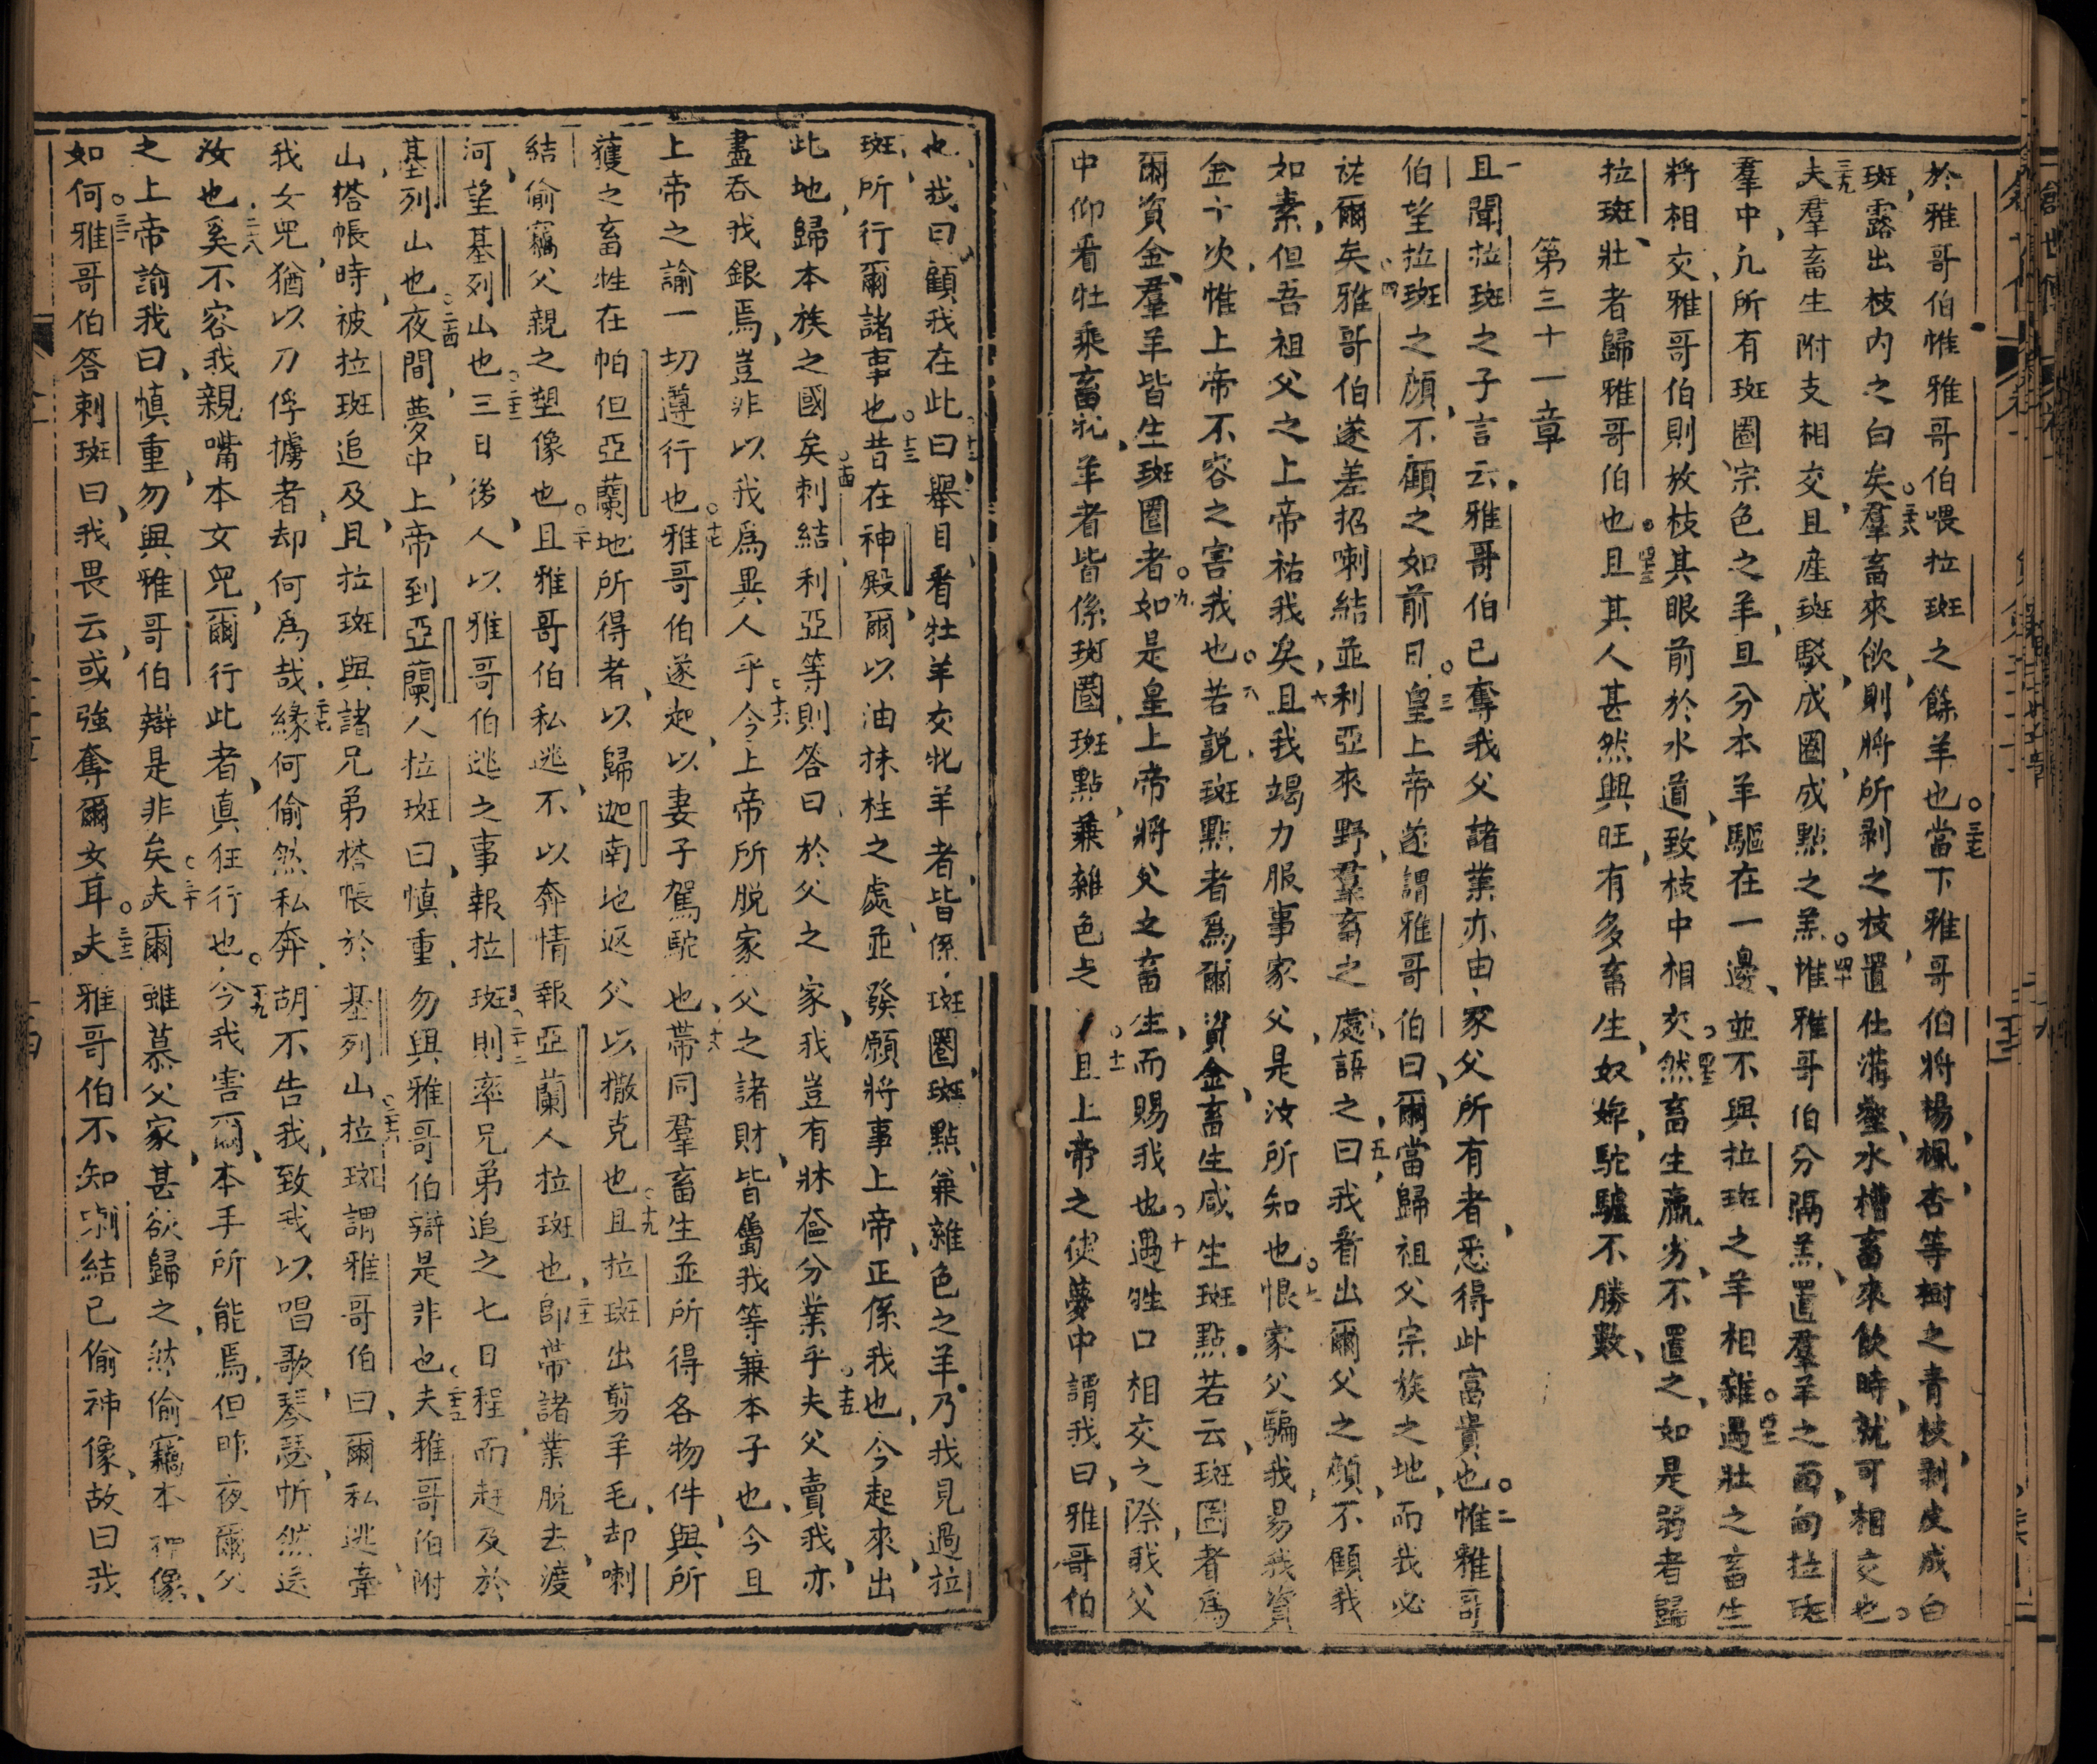 於雅哥伯惟雅哥伯喂拉斑之餘羊也○三七當下雅哥伯將楊楓杏等樹之青枝剥皮成白
斑露出枝内之白矣○三八羣畜來飲則將所剥之枝置仕溝壑水槽畜來飲時就可相交也○
三九夫羣畜生附支相交且産斑駁成圈成點之羔○四十惟雅哥伯分隔羔置羣羊之面向拉斑
羣中凢所有斑圈宗色之羊且分本羊驅在一邊並不與拉斑之羊相雜○四一遇壯之畜生
將相交雅哥伯則放枝其眼前於水道致枝中相交○四二然畜生羸劣不置之如是弱者歸
拉斑壯者歸雅哥伯也○四三且其人甚然興旺有多畜生奴婢駝驢不勝數
第三十一章
一且聞拉斑之子言云雅哥伯已奪我父諸業亦由家父所有者悉得此富貴也○二惟雅哥
伯望拉斑之顔不顧之如前日○三皇上帝遂謂雅哥伯曰爾當歸祖父宗族之地而我必
祐爾矣○四雅哥伯遂差招喇結並利亞來野羣畜之處○五語之曰我看出爾父之顔不顧我
如素但吾祖父之上帝祐我矣○六且我竭力服事家父是汝所知也○七恨家父騙我易我資
金十次惟上帝不容之害我也○八若説斑點者爲爾資金畜生咸生斑點若云斑圈者爲
爾資金羣羊皆生斑圈者○九如是皇上帝將父之畜生而賜我也○十遇牲口相交之際我父
中仰看牡乘畜牝羊者皆係斑圈斑點兼雜色之○十一且上帝之使夢中謂我曰雅哥伯
也我曰顧我在此○十二曰舉目看牡羊交牝羊者皆係斑圈斑點兼雜色之羊乃我見過拉
斑所行爾諸事也○十三昔在神殿爾以油抹柱之處並發願將事上帝正係我也今起來出
此地歸本族之國矣○十四剌結利亞等則答曰於父之家我豈有牀奩分業乎○十五夫父賣我亦
盡呑我銀焉豈非以我爲異人乎○十六今上帝所脱家父之諸財皆屬我等兼本子也今且
上帝之諭一切遵行也○十七雅哥伯遂起以妻子駕駝也○十八帶同羣畜生並所得各物件與所
獲之畜牲在帕但亞蘭地所得者以歸迦南地返父以撒克也○十九且拉斑出剪羊毛却喇
結偷竊父親之塑像也○二十且雅哥伯私逃不以奔情報亞蘭人拉斑也○二一卽帶諸業脱去渡
河望基列山也○二二三日後人以雅哥伯逃之事報拉斑○二三則率兄弟追之七日程而赶及於
基列山也○二四夜間夢中上帝到亞蘭人拉斑曰慎重勿與雅哥伯辯是非也○二五夫雅哥伯附
山搭帳時被拉斑追及且拉斑與諸兄弟搭帳於基列山○二六拉斑謂雅哥伯曰爾私逃牽
我女兒猶以刀俘擄者却何爲哉○二七緣何偷然私奔胡不告我致我以唱歌琴瑟忻然送
汝也○二八奚不容我親嘴本女兒爾行此者真狂行也○二九今我害爾本手所能焉但昨夜爾父
之上帝諭我曰慎重勿與雅哥伯辯是非矣○三十夫爾雖慕父家甚欲歸之然偷竊本神像
如何○三一雅哥伯答剌斑曰我畏云或強奪爾女耳○三二夫雅哥伯不知剌結已偷神像故曰我